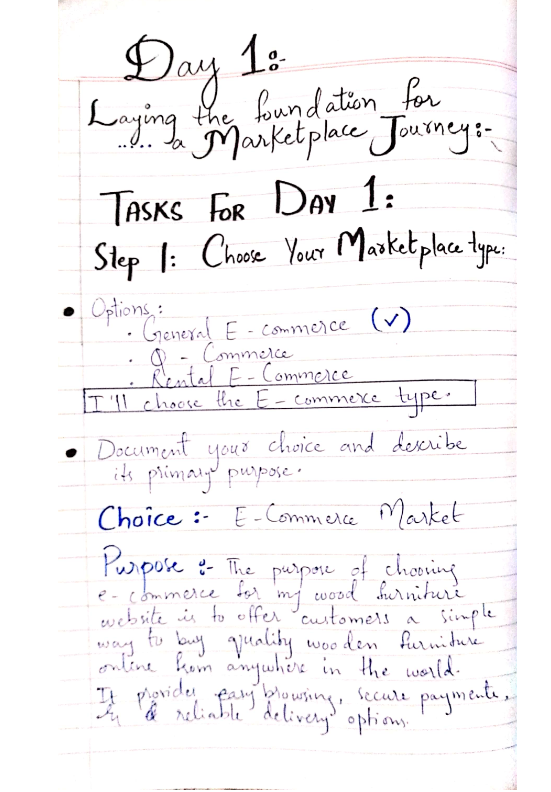 Day 1:-
Laying the foundation for
..... a Marketplace Journey:-
TASKS FOR DAY 1:
Step 1: Choose Your Marketplace type:
• Options:
· General E-commerce (✓)
· Q-Commerce
· Rental E-Commerce
I'll choose the E-commerce type.
• Document your choice and describe
its primary purpose.
Choice :- E-Commerce Market
Purpose :- The purpose of choosing
e-commerce for my wood furniture
website is to offer customers a simple
way to buy quality wooden furniture
online from anywhere in the world.
It provides easy browsing, secure payments,
& reliable delivery options.